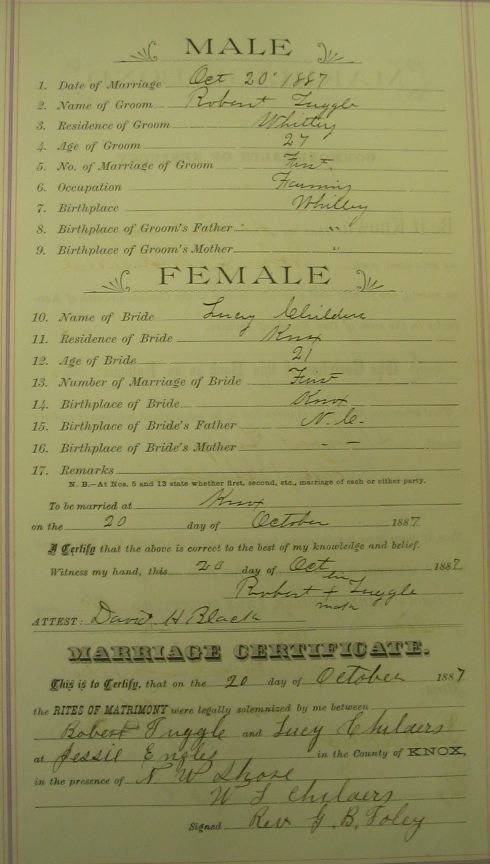 MALE
1. Date of Marriage Oct 20" 1887
2. Name of Groom Robert Tuggle
3. Residence of Groom Whitley
4. Age of Groom 27
5. No. of Marriage of Groom First.
6. Occupation Farming
7. Birthplace Whitley
8. Birthplace of Groom's Father "
9. Birthplace of Groom's Mother "
FEMALE
10. Name of Bride Lucy Childers
11. Residence of Bride Knox
12. Age of Bride 21
13. Number of Marriage of Bride First
14. Birthplace of Bride Knox
15. Birthplace of Bride's Father N. C.
16. Birthplace of Bride's Mother - -
17. Remarks
N. B.—At Nos. 5 and 13 state whether first, second, etc., marriage of each or either party.
To be married at Knox
on the 20 day of October 1887
I Certify that the above is correct to the best of my knowledge and belief.
Witness my hand, this 20 day of Oct 1887
his
Robert + Tuggle
mark
ATTEST: David H Black
MARRIAGE CERTIFICATE.
This is to Certify, that on the 20 day of October 1887
the RITES OF MATRIMONY were legally solemnized by me between
Robert Tuggle and Lucy Childers
at Jessie Engles in the County of KNOX,
in the presence of N W
W L Childers
Signed Rev G. B. Foley